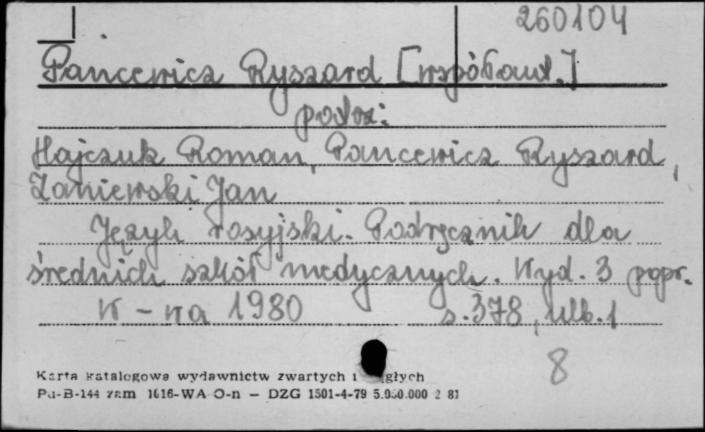 260104
Pancewicz Ryszard [współaut.]
patrz:
Hajczuk Roman, Pancewicz Ryszard,
Zaniewski Jan
Język rosyjski. Podręcznik dla
średnich szkół medycznych. Wyd. 3 popr.
W-wa 1980 s. 378, nlb. 1
8
Karta katalogowa wydawnictw zwartych i ciągłych
Pu-B-144 zam 1616-WA O-n — DZG 1501-4-79 5.000.000 2 81